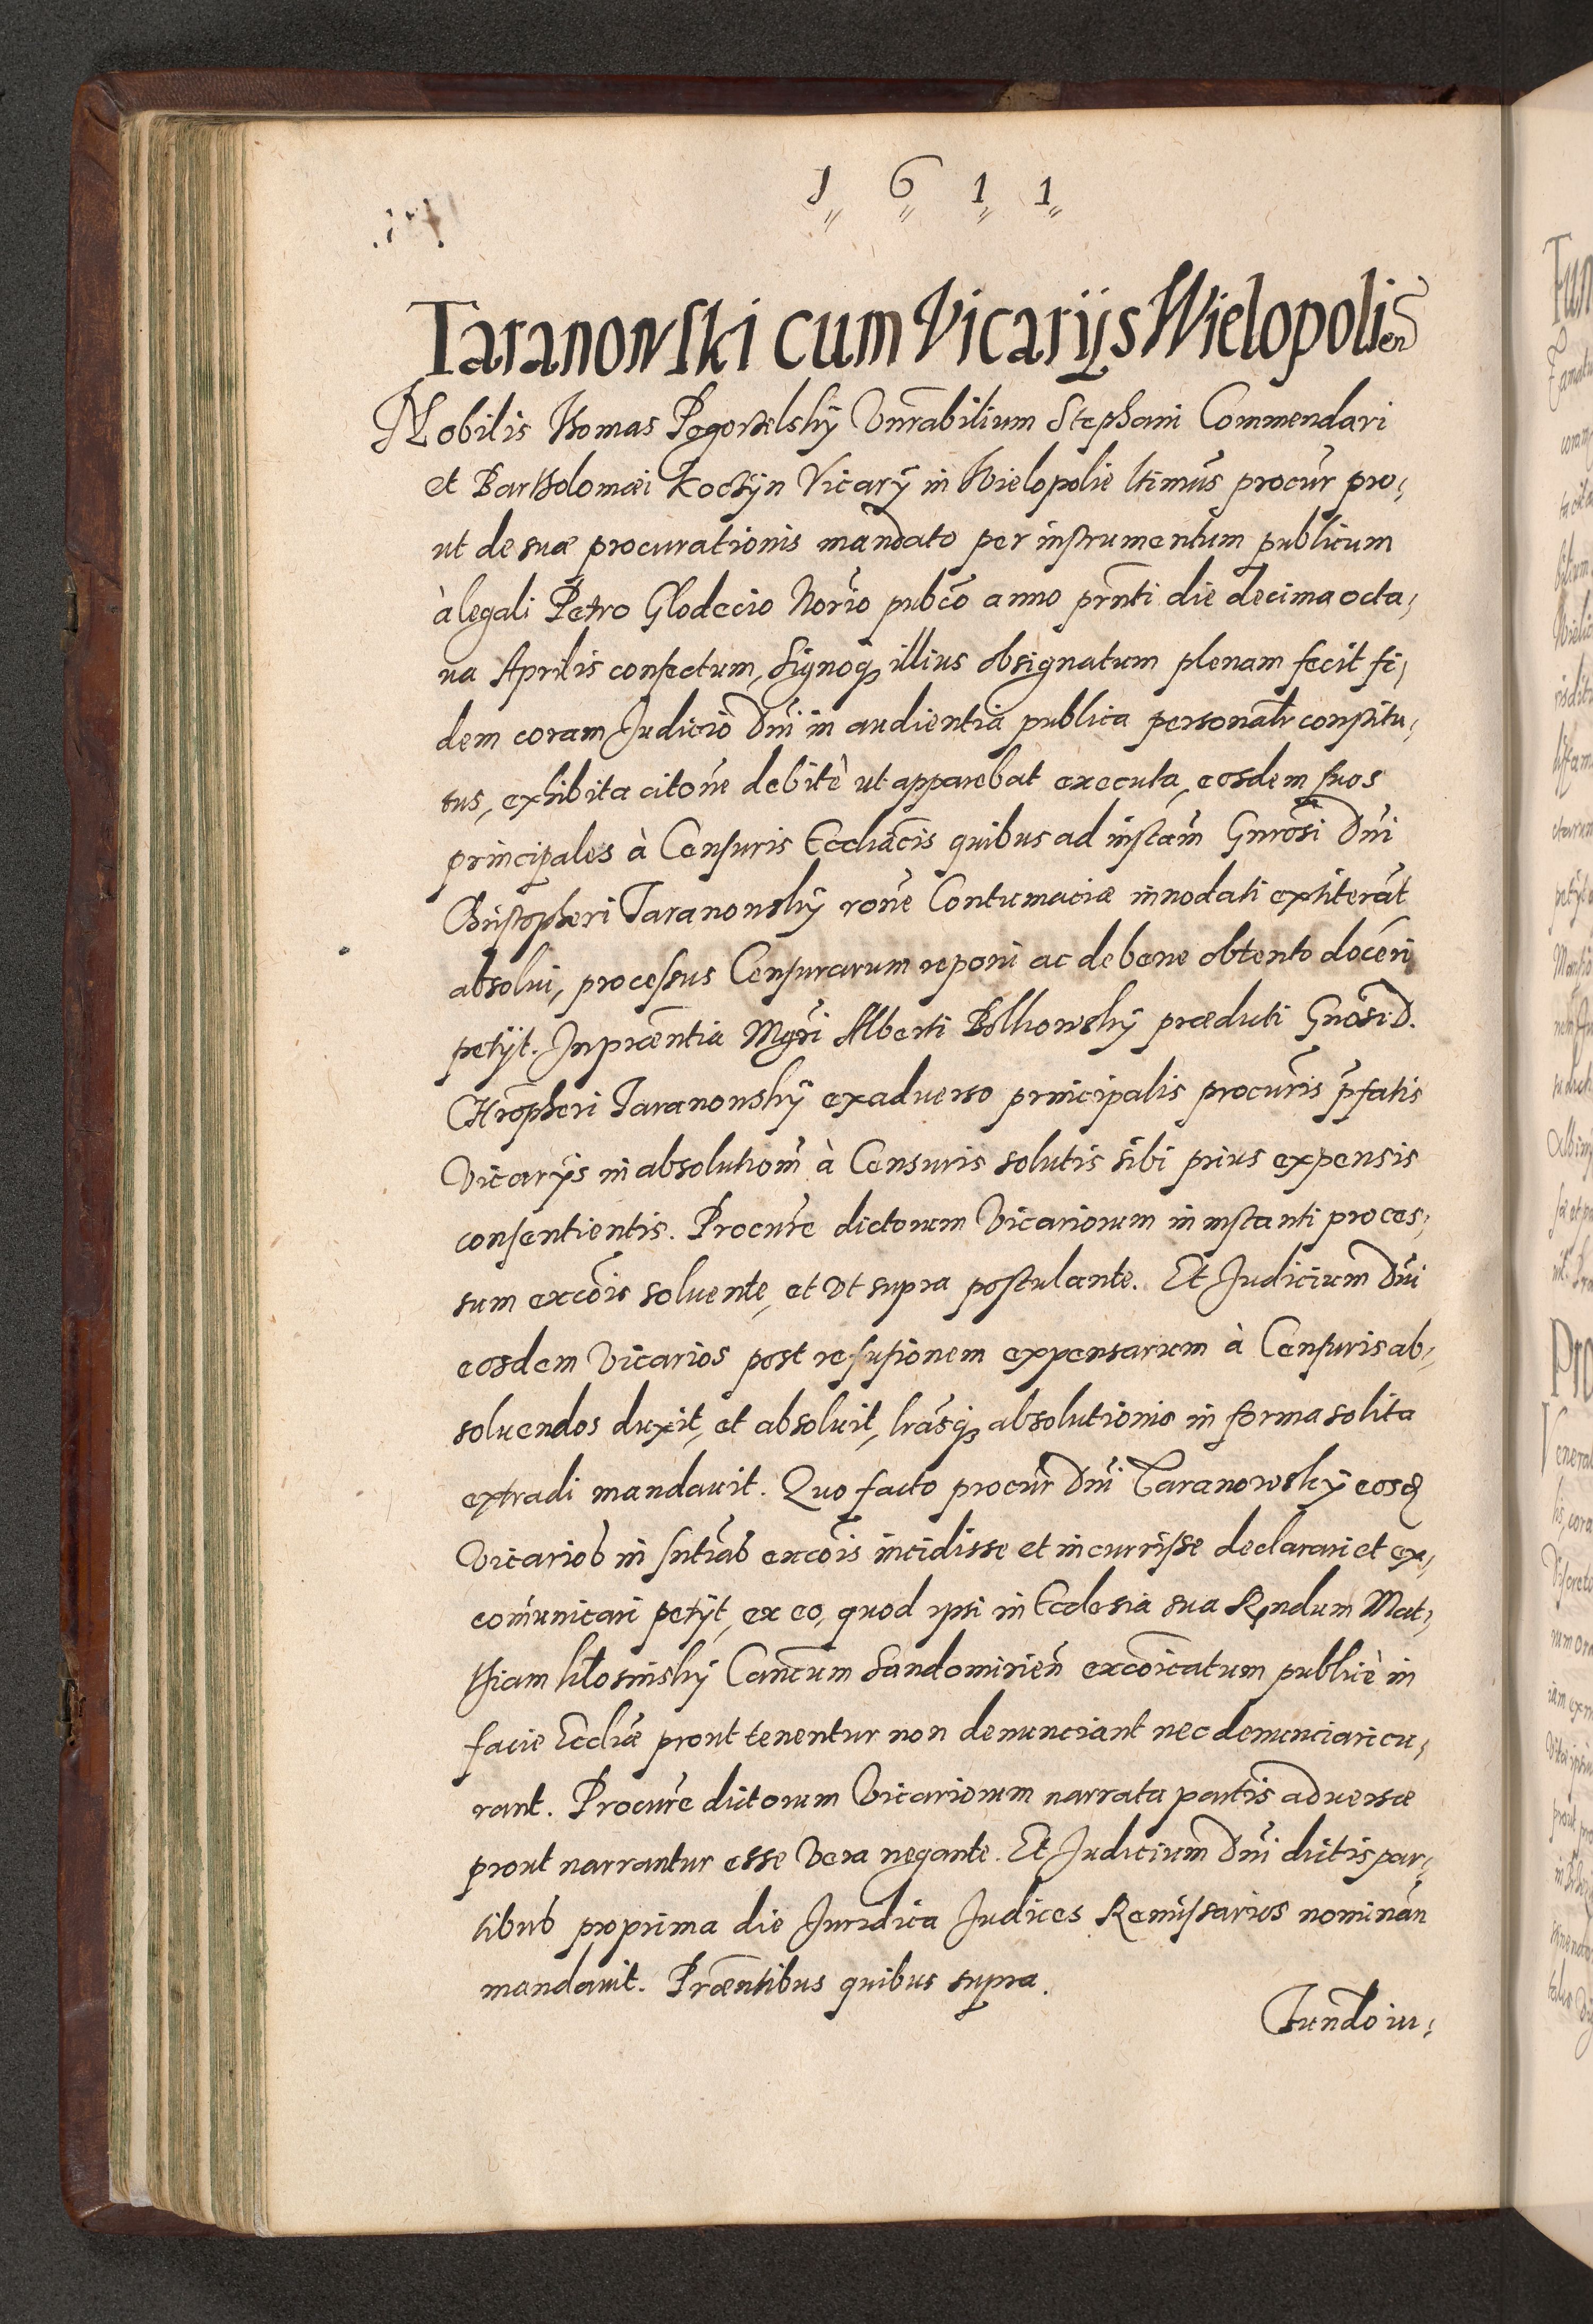 1 6 1 1
Taranowski cum Vicarijs Wielopolien
Nobilis Thomas Pogorzelskÿ Vnrabilium Stephani Commendari
et Bartholomæi Koczÿn Vicarÿ in Wielopolie ltimus procur pro,
ut de suæ procurationis mandato per instrumentum publicum
à legali Petro Glodecio Norio pubco anno prnti die decima octa,
ua Aprilis confectum, Signoq illius obsignatum plenam fecit fi,
dem coram Judicio Dni in audientia publica personalr constitu,
tus, exhibita citone debitè ut apparebat executa, eosdem suos
principales à Censuris Ecclacis quibus ad instam Gnrosi Dni
Christopheri Taranowskÿ rone Contumaciæ innodati extiterat
absolui, processus Censurarum reponi ac de bene obtento doceri
petÿt. In præntia Mgri Alberti Bolkowskÿ præduti Gnosi D.
Chropheri Taranowskÿ ex aduerso principalis procuris pfatis
Vicarÿs in absolutiom à Censuris solutis sibi prius expensis
consentientis. Procure dictorum Vicariorum in instanti proces,
sum excois soluente, et Vt supra postulante. Et Judicium Dni
eosdem Vicarios post refusionem expensarum à Censuris ab,
soluendos duxit, et absoluit, lrasq absolutionis in forma solita
extradi mandauit. Quo facto procur Dni Taranowskÿ eosd
Vicarios in sntias excois incidisse et incurrisse declarari et ex,
comunicari petÿt, ex eo, quod ipsi in Ecclesia sua Rndum Mat,
thiam Klosinskÿ Cancum Sandomirien excoicatum publicè in
facie Eccliæ prout tenentur non denunciant nec denunciari cu,
rant. Procure dictorum Vicariorum narrata partis aduersæ
prout narrantur esse Vera negante. Et Judicium Dni dictis par,
tibus pro prima die Juridica Judices Remissarios nominan
mandauit. Præntibus quibus supra.
Fundo iu,